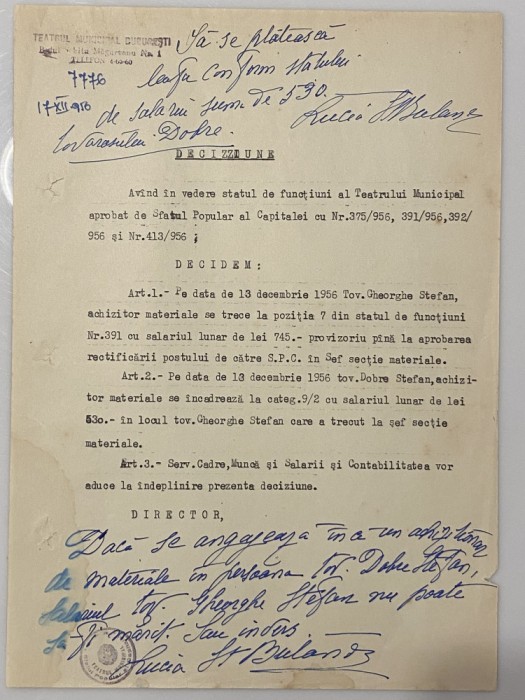 TEATRUL MUNICIPAL BUCUREȘTI
Bodul Măgureanu Nr. 1
TELEFON
7776
17 XII 956
Să se plătească
leafa conform statului
de salarii suma de 530.
tovarasului Dobre.
Lucia St Bulandra
DECIZIUNE
Avînd în vedere statul de funcțiuni al Teatrului Municipal
aprobat de Sfatul Popular al Capitalei cu Nr.375/956, 391/956,392/
956 și Nr.413/956 ;
DECIDEM:
Art.1.- Pe data de 13 decembrie 1956 Tov.Gheorghe Stefan,
achizitor materiale se trece la poziția 7 din statul de funcțiuni
Nr.391 cu salariul lunar de lei 745.- provizoriu pînă la aprobarea
rectificării postului de către S.P.C. în Șef secție materiale.
Art.2.- Pe data de 13 decembrie 1956 tov.Dobre Stefan,achizi-
tor materiale se încadrează la categ.9/2 cu salariul lunar de lei
530.- în locul tov.Gheorghe Stefan care a trecut la șef secție
materiale.
Art.3.- Serv.Cadre,Muncă și Salarii și Contabilitatea vor
aduce la îndeplinire prezenta deciziune.
DIRECTOR,
Dacă se angajează încă un achizitionar
de materiale in persoana tov. Dobre Ștefan,
salariul tov. Gheorghe Ștefan nu poate
fi mărit. Sau invers
Lucia St Bulandra